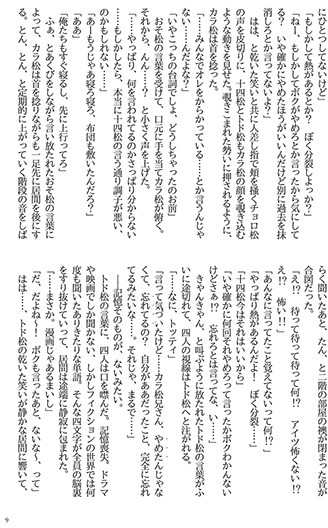 にひとつしてないけど」
「もしかして熱があるとか？　ぼく分裂しよっか？」
「ねー、もしかしてボクがやめろとか言ったから気にして
る？　いや確かにやめたほうがいいんだけど別に過去を抹
消しろとか言ってないよ？」
　はは、と乾いた笑いと共に人差し指で頬を掻くチョロ松
の声を皮切りに、十四松とトド松もカラ松の顔を覗き込む
ような動きを見せた。覗きこまれた勢いに押されるように、
カラ松は首を捻った。
「……みんなでオレをからかっている……とか言うんじゃ
ない……んだよな？」
「いやこっちの台詞でしょ、どうしちゃったのお前」
　おそ松の言葉を受けて、口元に手を当てカラ松が俯く。
それから、んん……？　と小さく声を上げた。
「……やっぱり、何を言われてるのかさっぱり分からない
……もしかしたら、本当に十四松の言う通り調子が悪い、
のかもしれない……」
「あーもうじゃあ寝ろ寝ろ、布団も敷いたんだろ？」
「ああ」
「俺たちもすぐ寝るし、先に上行ってろ」
　ふぁ、とあくびをしながら言い放たれたおそ松の言葉に
よって、カラ松は首を捻りながらも一足先に居間を後にす
る。とん、とん、と定期的に上がっていく階段の音をしば
らく聞いたあと、たん、と二階の部屋の襖が閉まった音が
合図だった。
「え⁉　待って待って待って何⁉　アイツ怖くない⁉
え⁉　怖い‼」
「あんなに言ってたこと覚えてないって何⁉」
「やっぱり熱があるんだよ！　ぼく分裂……」
「十四松今はそれはいいから」
「いや確かに何回それやめろって言ったかボクわかんない
けどさぁ⁉　忘れろとは言ってな、い……」
　きゃんきゃん、と叫ぶように放たれたトド松の言葉がふ
いに途切れて、四人の視線はトド松へと注がれる。
「……なに、トッティ」
「言って気づいたけど……カラ松兄さん、やめたんじゃな
くて、忘れてるの？　自分がああだったこと、完全に忘れ
ちゃってるの……？　それじゃ、まるで……」
　――記憶そのものが、ないみたい。
　トド松の言葉に、四人は口を噤んだ。記憶喪失。ドラマ
や映画でしか聞かない、しかしフィクションの世界では何
度も聞いたありきたりな単語。そんな四文字が全員の脳裏
をすり抜けていって、居間は途端に静寂に包まれた。
「……まさか。漫画じゃあるまいし」
「だ、だよね〜！　ボクも言ったあと、ないな〜、って」
　はは……、トド松の乾いた笑いが静かな居間に響いて、
9